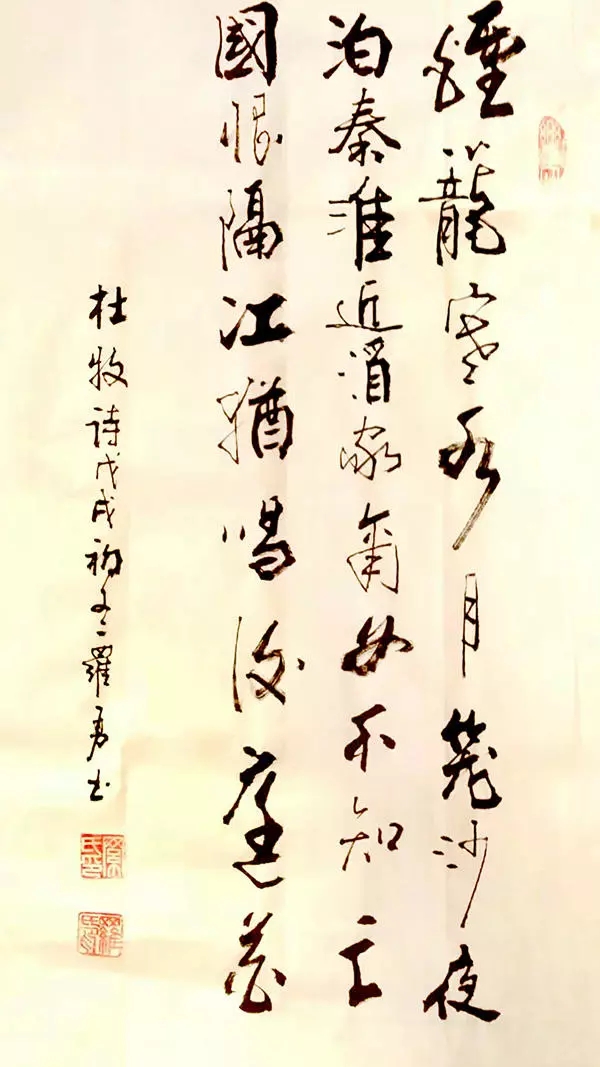 煙籠寒水月笼沙夜
泊秦淮近酒家商女不知亡
國恨隔江猶唱後庭花
杜牧詩戊戌初冬羅勇书